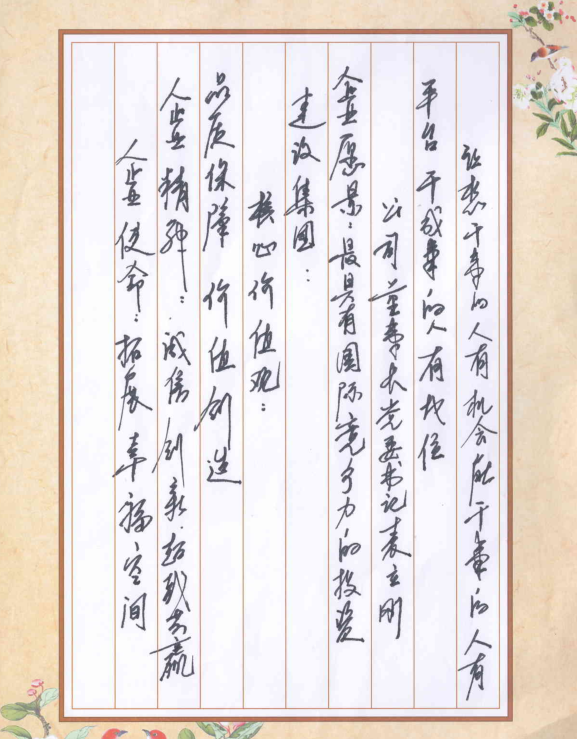 让想干事的人有机会能干事的人有
平台干成事的人有地位
公司董事长党委书记袁立刚
企业愿景：最具有国际竞争力的投资
建设集团：
核心价值观：
品质保障 价值创造
人企业精神：诚信创新·超越共赢
人企业使命：拓展幸福空间